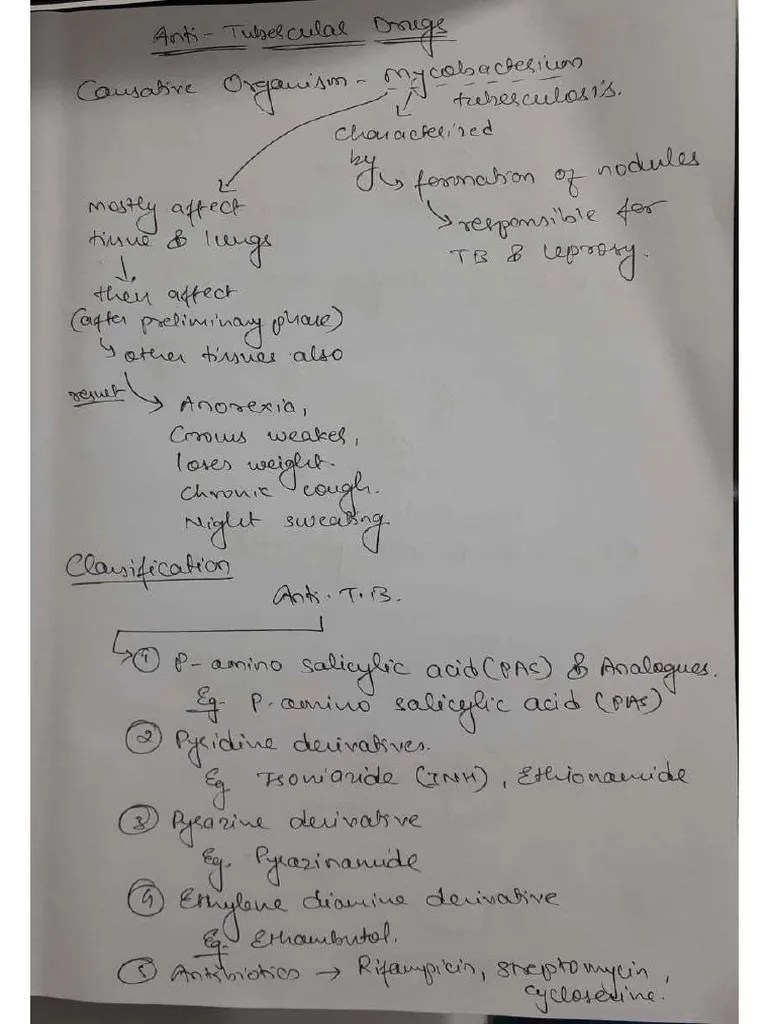 Anti-Tubercular Drugs
Causative Organism - Mycobacterium
tuberculosis.
Characterised
by
formation of nodules
responsible for
TB & leprosy.
mostly affect
tissue & lungs
then affect
(after preliminary phase)
other tissues also
result
Anorexia,
Grows weaker,
loses weight.
Chronic cough.
Night sweating
Classification
Anti.T.B.
① P-amino salicylic acid (PAS) & Analogues.
Eg. P-amino salicylic acid (PAS)
② Pyridine derivatives.
Eg Isoniazide (INH), Ethionamide
③ Pyrazine derivative
Eg. Pyrazinamide
④ Ethylene diamine derivative
Eg. Ethambutol.
⑤ Antibiotics → Rifampicin, Streptomycin,
Cycloserine.